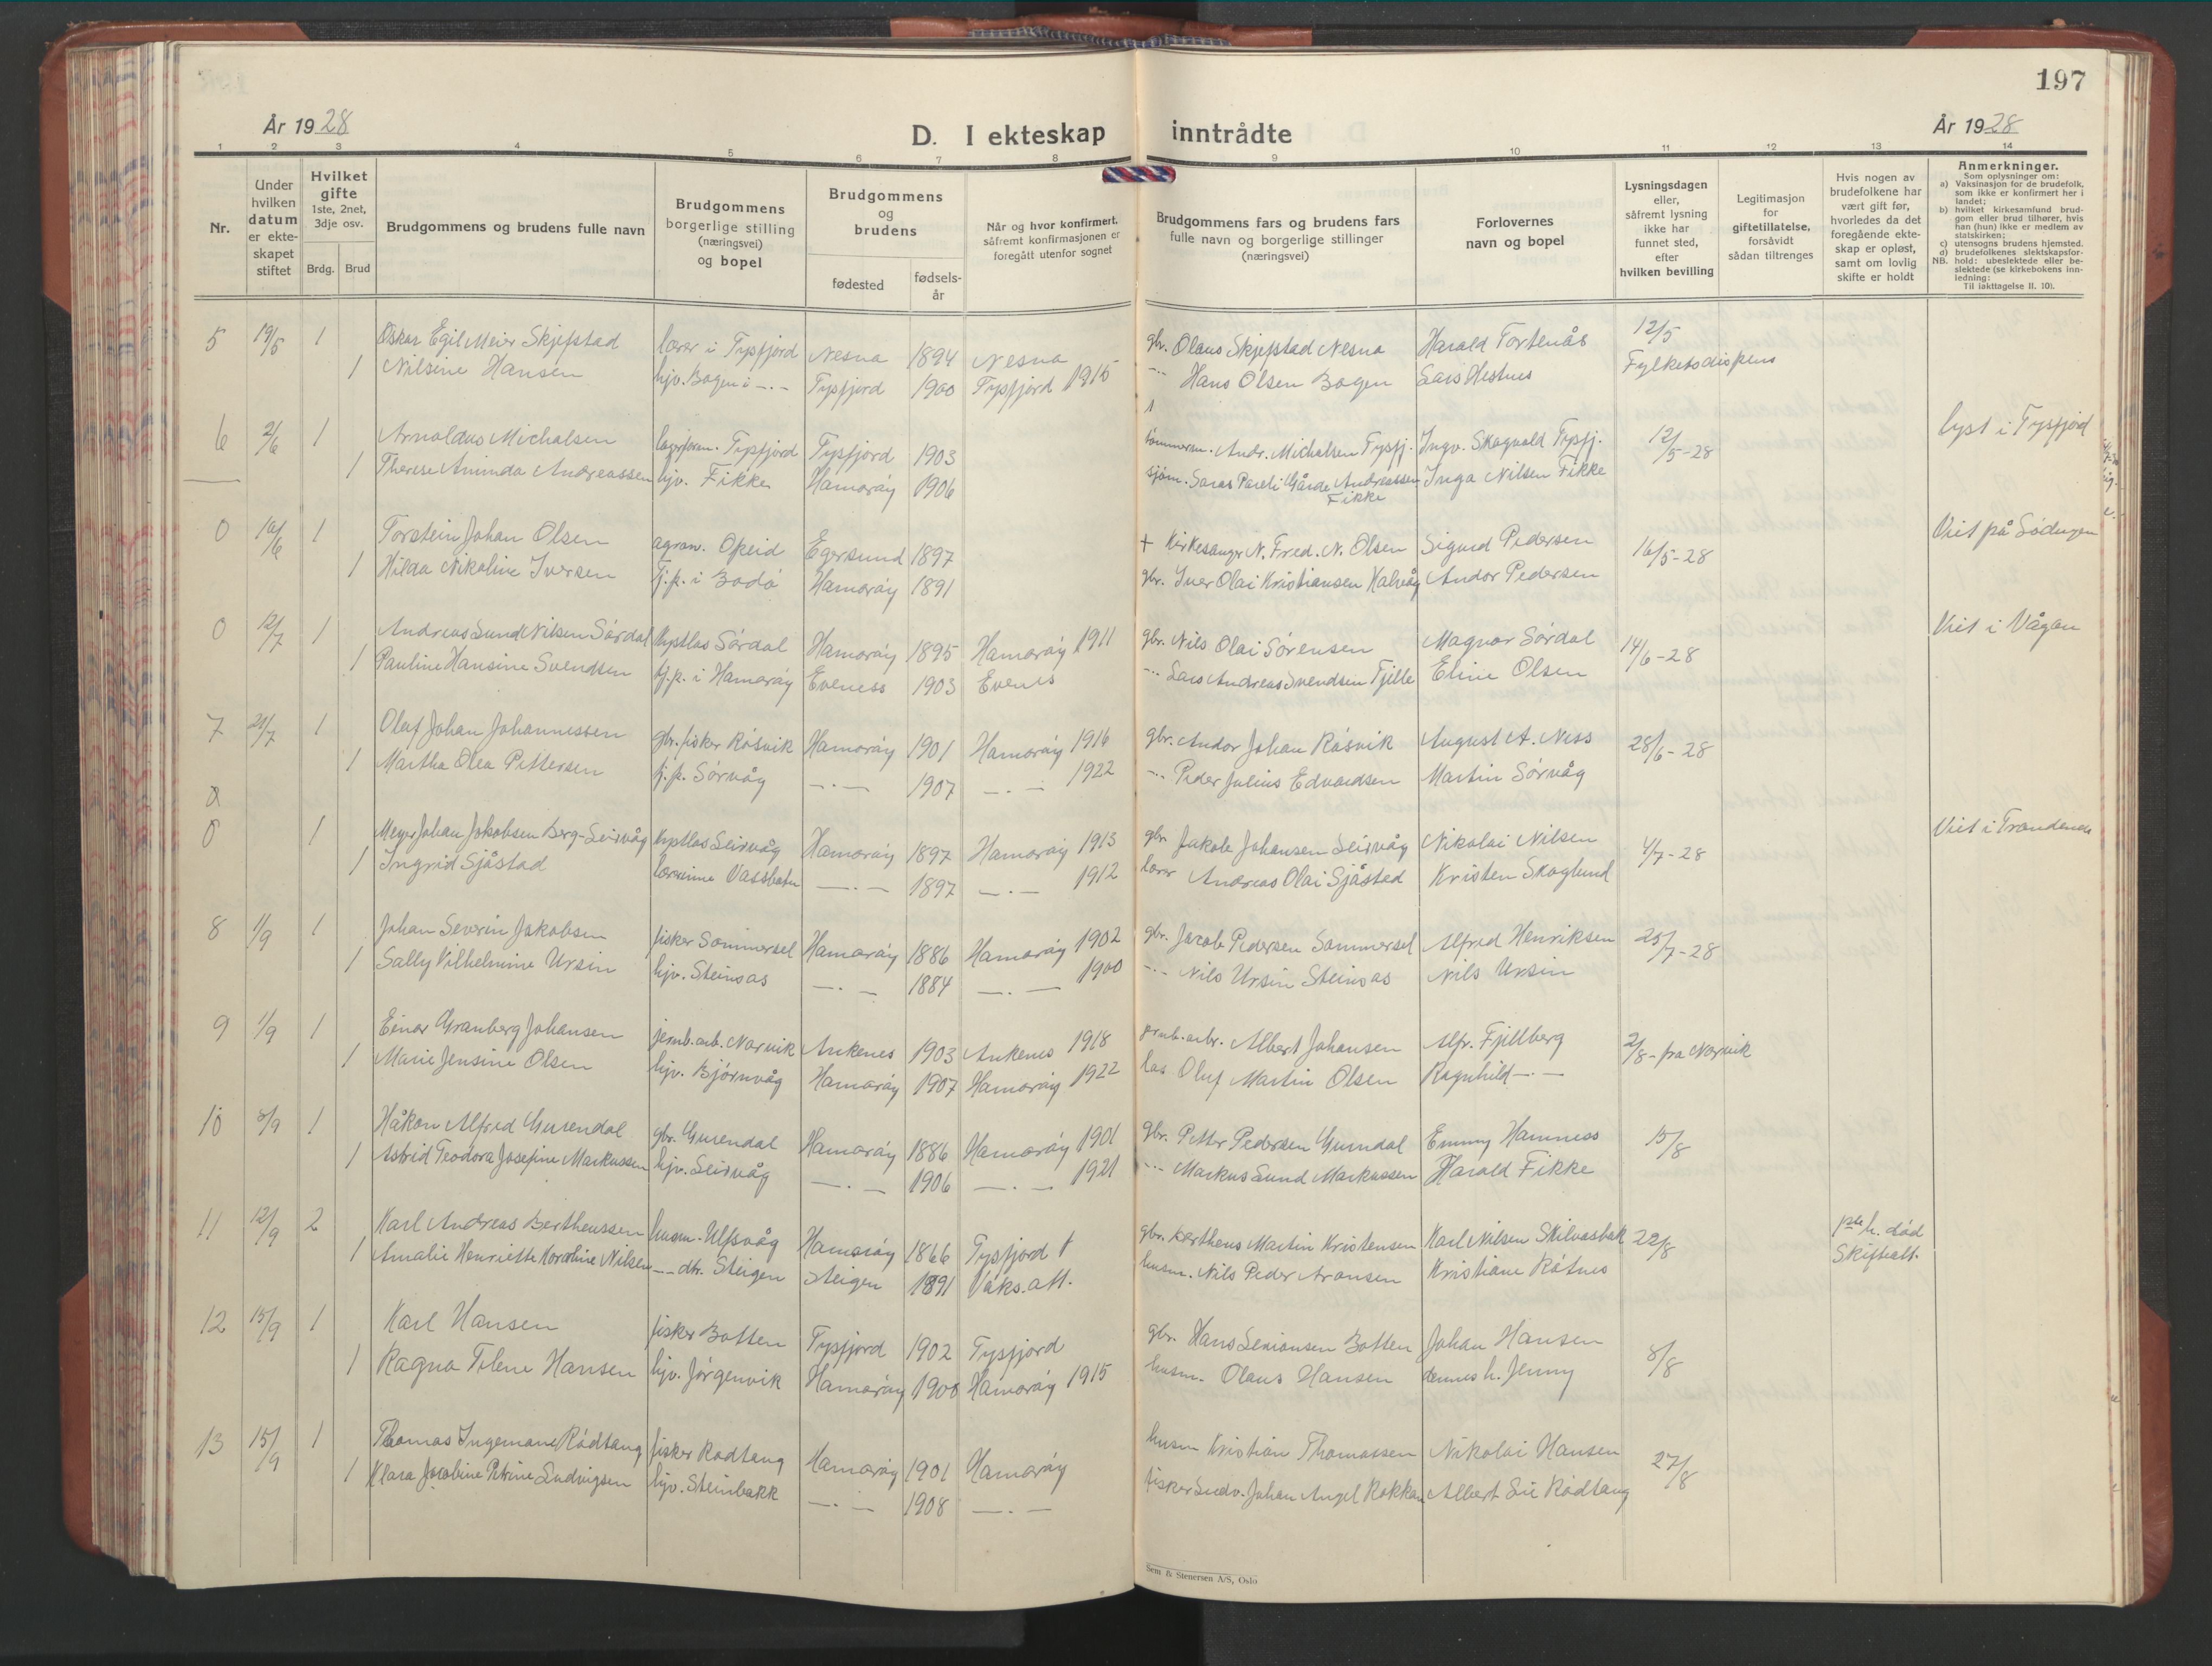 197
År 1928
D. I ekteskap inntrådte
År 1928
1 2 3 4 5 6 7 8 9 10 11 12 13 14
Nr.
Under hvilken datum er ekteskapet stiftet
Hvilket gifte
1ste, 2net, 3dje osv.
Brdg. Brud
Brudgommens og brudens fulle navn
Brudgommens borgerlige stilling (næringsvei) og bopel
Brudgommens og brudens
fødested
fødselsår
Når og hvor konfirmert, såfremt konfirmasjonen er foregått utenfor sognet
Brudgommens fars og brudens fars fulle navn og borgerlige stillinger (næringsvei)
Forlovernes navn og bopel
Lysningsdagen eller, såfremt lysning ikke har funnet sted, efter hvilken bevilling
Legitimasjon for giftetillatelse, forsåvidt sådan tiltrenges
Hvis nogen av brudefolkene har vært gift før, hvorledes da det foregående ekteskap er opløst, samt om lovlig skifte er holdt
Anmerkninger.
Som oplysninger om:
a) Vaksinasjon for de brudefolk, som ikke er konfirmert her i landet;
b) hvilket kirkesamfund brudgom eller brud tilhører, hvis han (hun) ikke er medlem av statskirken;
c) utensogns brudens hjemsted.
d) brudefolkenes slektskapsforhold: ubeslektede eller beslektede (se kirkebokens innledning:
NB.
Til iakttagelse II. 10).
5 19/5 1 Oskar Egil Meier Skjefstad lærer i Tysfjord Nesna 1894 Nesna gbr. Olaus Skjefstad Nesna Harald Tortenås 12/5
1 Nilsine Hansen hjv. Bogen i -.- Tysfjord 1900 Tysfjord 1915 -.- Hans Olsen Bogen Lars Hestnes Fylketsdispens
6 2/6 1 Arnoldus Michalsen Tysfjord Tysfjord 1903 tømmerm. Andr. Michalsen Tysfj. Ingv. Skogvold Tysfj. 12/5-28 lyst i Tysfjord
1 Therese Aminda Andreassen hjv. Fikke Hamarøy 1906 sjøm. Andreassen Fikke Inga Nilsen Fikke
0 10/6 1 Torstein Johan Olsen agron. Opeid Egersund 1897 + Kirkesanger N. Fred. N. Olsen Sigurd Pedersen 16/5-28 Viet på
1 Hilda Nikoline Iversen tj.p. i Bodø Hamarøy 1891 gbr. Iver Olai Kristiansen Kalvåg Andor Pedersen
0 12/7 1 Andreas Lund Nilsen Sørdal Sørdal Hamarøy 1895 Hamarøy 1911 gbr. Nils Olai Sørensen Magnar Sørdal 14/6-28 Viet i Vågan
1 Pauline Hansine Svendsen tj.p. i Hamarøy Eveness 1903 Evenes -.- Lars Andreas Svendsen Eline Olsen
7 21/7 1 Olaf Johan Johannessen gbr. fisker Røsvik Hamarøy 1901 Hamarøy 1916 gbr. Andor Johan Røsvik August A. Ness 28/6-28
1 Martha Olea Pettersen tj.p. Sørvåg -.- 1907 -.- 1922 -.- Peder Julius Edvardsen Martin Sørvåg
0 1 Meyer Johan Jakobsen Berg-Leirvåg Leirvåg Hamarøy 1897 Hamarøy 1913 gbr Jakob Johansen Leirvåg Nikolai Nilsen 4/7-28 Viet i Trondenes
1 Ingrid Sjåstad lærerinne Vassbotn -.- 1897 -.- 1912 lærer Andreas Olai Sjåstad Kristen Skoglund
8 1/9 1 Johan Severin Jakobsen fisker Sommersel Hamarøy 1886 Hamarøy 1902 gbr. Jacob Pedersen Sommersel Alfred Henriksen 25/7-28
1 Sally Vilhelmine Ursin hjv. Steinsas -.- 1884 -.- 1900 -.- Nils Ursin Steinsas Nils Ursin
9 1/9 1 Einar Granberg Johansen jernb.arb. Narvik Ankenes 1903 Ankenes 1918 jernb.arb. Albert Johansen Alfr. Fjellberg 2/8-fra Narvik
1 Marie Jensine Olsen hjv. Bjørnvåg Hamarøy 1907 Hamarøy 1922 Oluf Martin Olsen Ragnhild -.-
10 8/9 1 Håkon Alfred Gurendal gbr. Gurendal Hamarøy 1886 Hamarøy 1901 gbr. Petter Pedersen Gurendal Emmy Hamness 15/8
1 Astrid Teodora Josefine Markussen hjv. Leirvåg -.- 1906 -.- 1921 -.- Markus Lund Markussen Harald Fikke
11 12/9 2 Karl Andreas Bertheussen husm. Ulfsvåg Hamarøy 1866 Tysfjord gbr. Bertheus Martin Kristensen Karl Nilsen Skilvasbak 22/8 h. død
1 Amalie Henriette Karoline Nilsen -.- dtr. Steigen Steigen 1891 Vaks.att. husm. Nils Peder Aronsen Kristiane Røtnes Skifteatt.
12 15/9 1 Karl Hansen fisker Botten Tysfjord 1902 Tysfjord gbr. Hans Simonsen Botten Johan Hansen 8/8
1 Ragna Tilene Hansen hjv. Jørgenvik Hamarøy 1900 Hamarøy 1915 husm. Olaus Hansen dennes h. Jenny
13 15/9 1 Thomas Ingemann Rødtang fisker Rødtang Hamarøy 1901 Hamarøy husm Kristian Thomassen Nikolai Hansen 27/8
1 Klara Jacobine Petrine Ludvigsen hjv. Steinbakk -.- 1908 -.- fisker Ludv. Johan Angel Kokkan Albert Rødtang
Sem & Stenersen A/S, Oslo